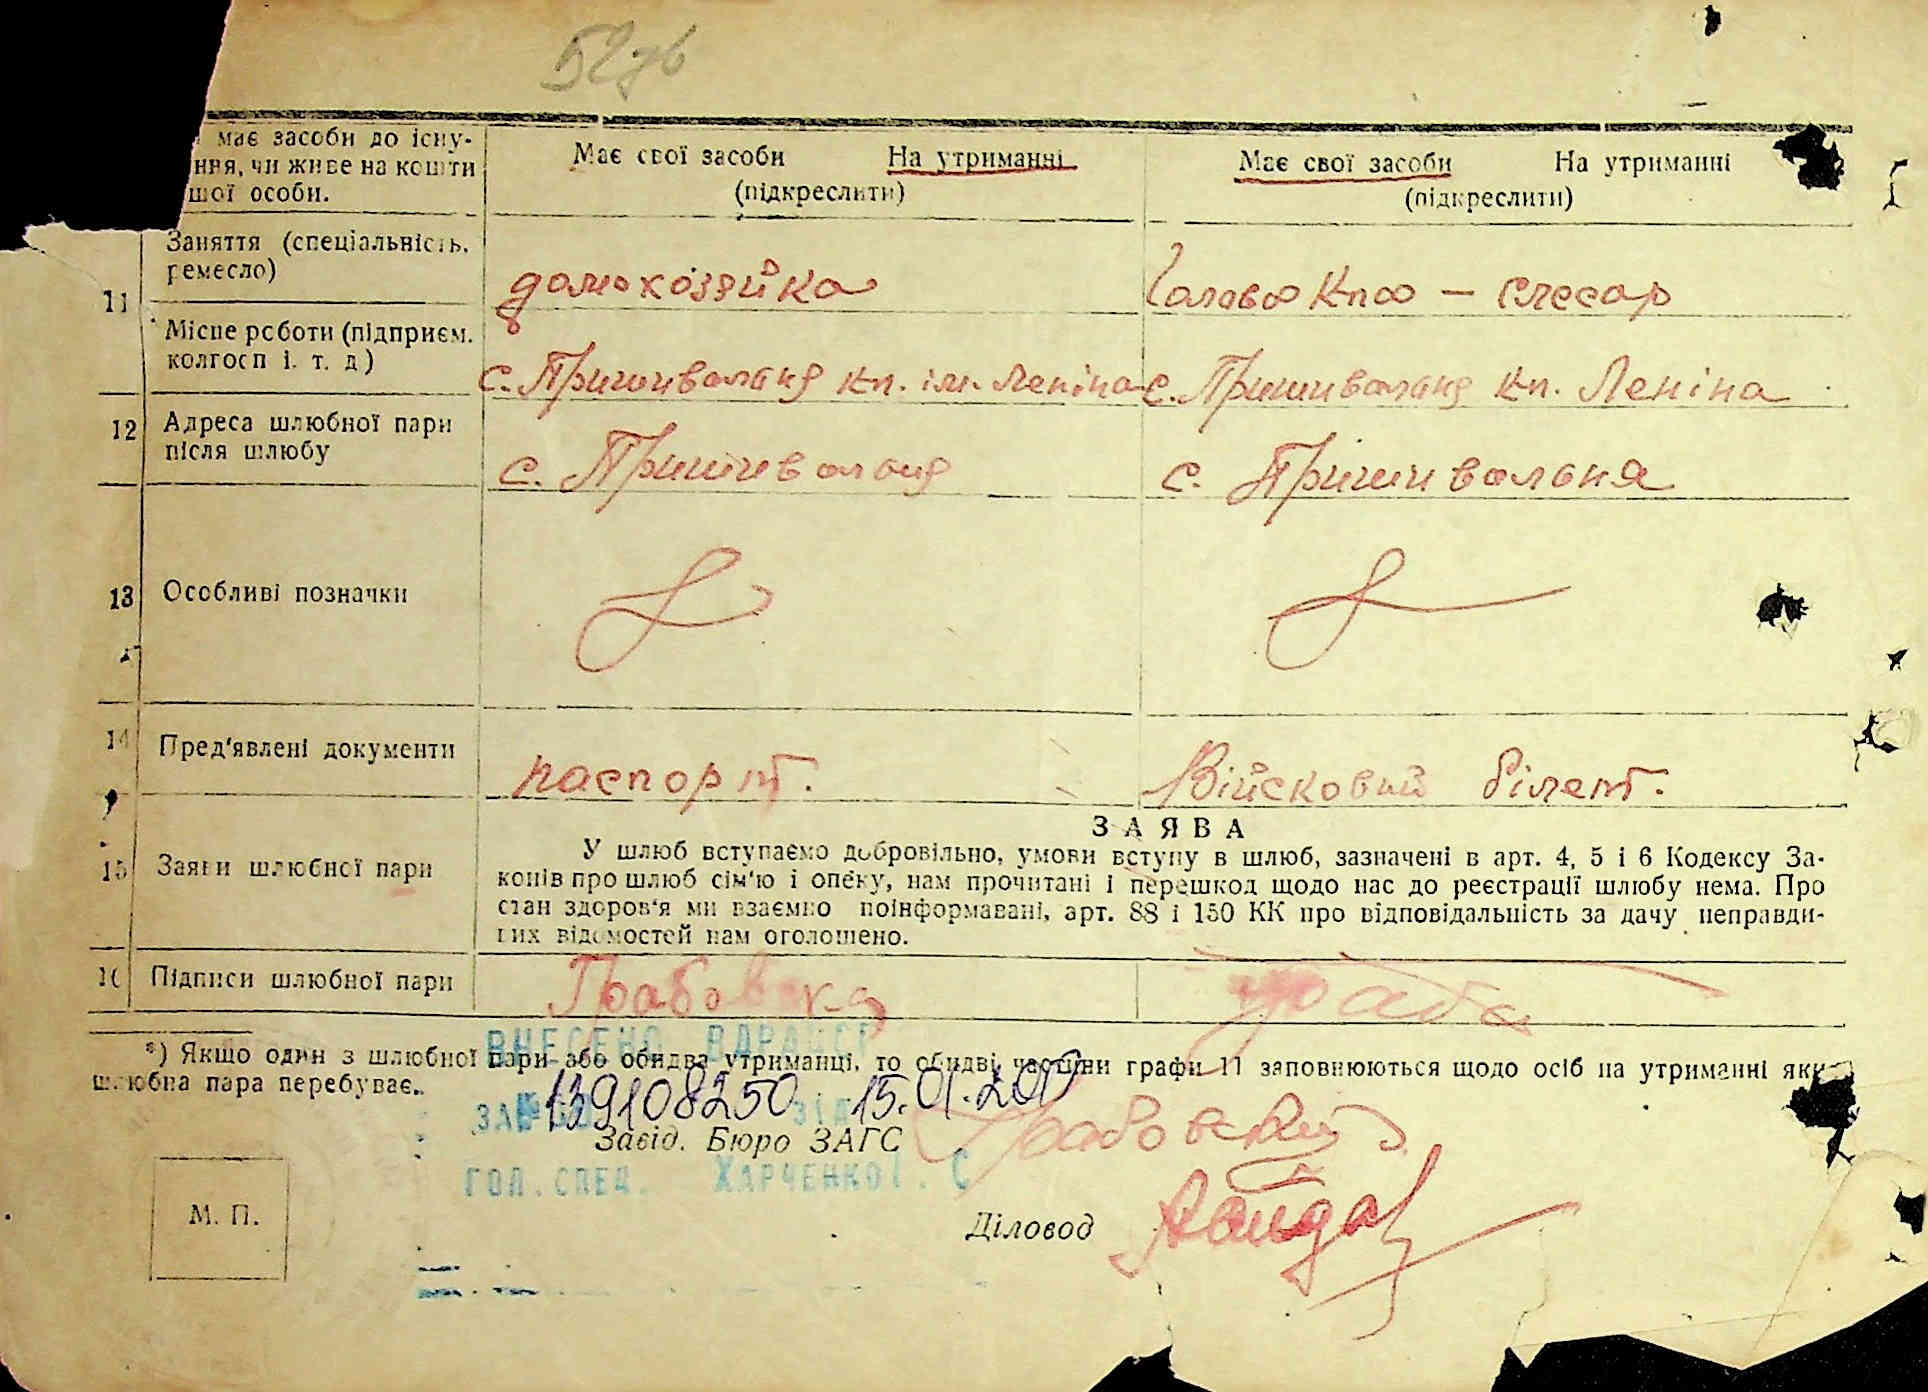 52зв
має засоби до існу-
ння, чи живе на кошти
шої особи.
Має свої засоби На утриманні
(підкреслити)
Має свої засоби На утриманні
(підкреслити)
11
Заняття (спеціальність,
ремесло)
домохозяйка
Голова Кпоо — слесар
Місце роботи (підприєм.
колгосп і. т. д)
с. Пришивальня кп. ім. Леніна
с. Пришивальня кп. Леніна
12
Адреса шлюбної пари
після шлюбу
с. Пришивальня
с. Пришивальня
13
Особливі позначки
14
Пред'явлені документи
паспорт.
Війсковий білет.
15
Заяви шлюбної пари
ЗАЯВА
У шлюб вступаємо добровільно, умови вступу в шлюб, зазначені в арт. 4, 5 і 6 Кодексу За-
конів про шлюб сім'ю і опеку, нам прочитані і перешкод щодо нас до реєстрації шлюбу нема. Про
стан здоров'я ми взаємно поінформавані, арт. 88 і 150 КК про відповідальність за дачу неправди-
вих відомостей нам оголошено.
16
Підписи шлюбної пари
Грабовская
ВНЕСЕНО ДРАЦСГ
*) Якщо один з шлюбної пари або обидва утриманці, то обидві частини графи 11 заповнюються щодо осіб на утриманні яких
шлюбна пара перебуває.
ЗА № 139108250 ВІД 15.01.2010
Завід. Бюро ЗАГС
Грабовский
ГОЛ. СПЕЦ. ХАРЧЕНКО І. С
М. П.
Діловод